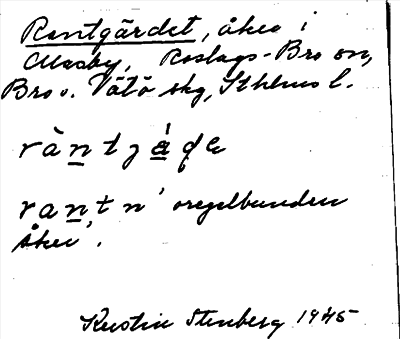 Rantgärdet, åker i
Massby, Roslags-Bro sn,
Bro o. Vätö skg, Sthlms l.
ràntgáḍe
rantn' oregelbunden
åker'.
Kerstin Stenberg 1945